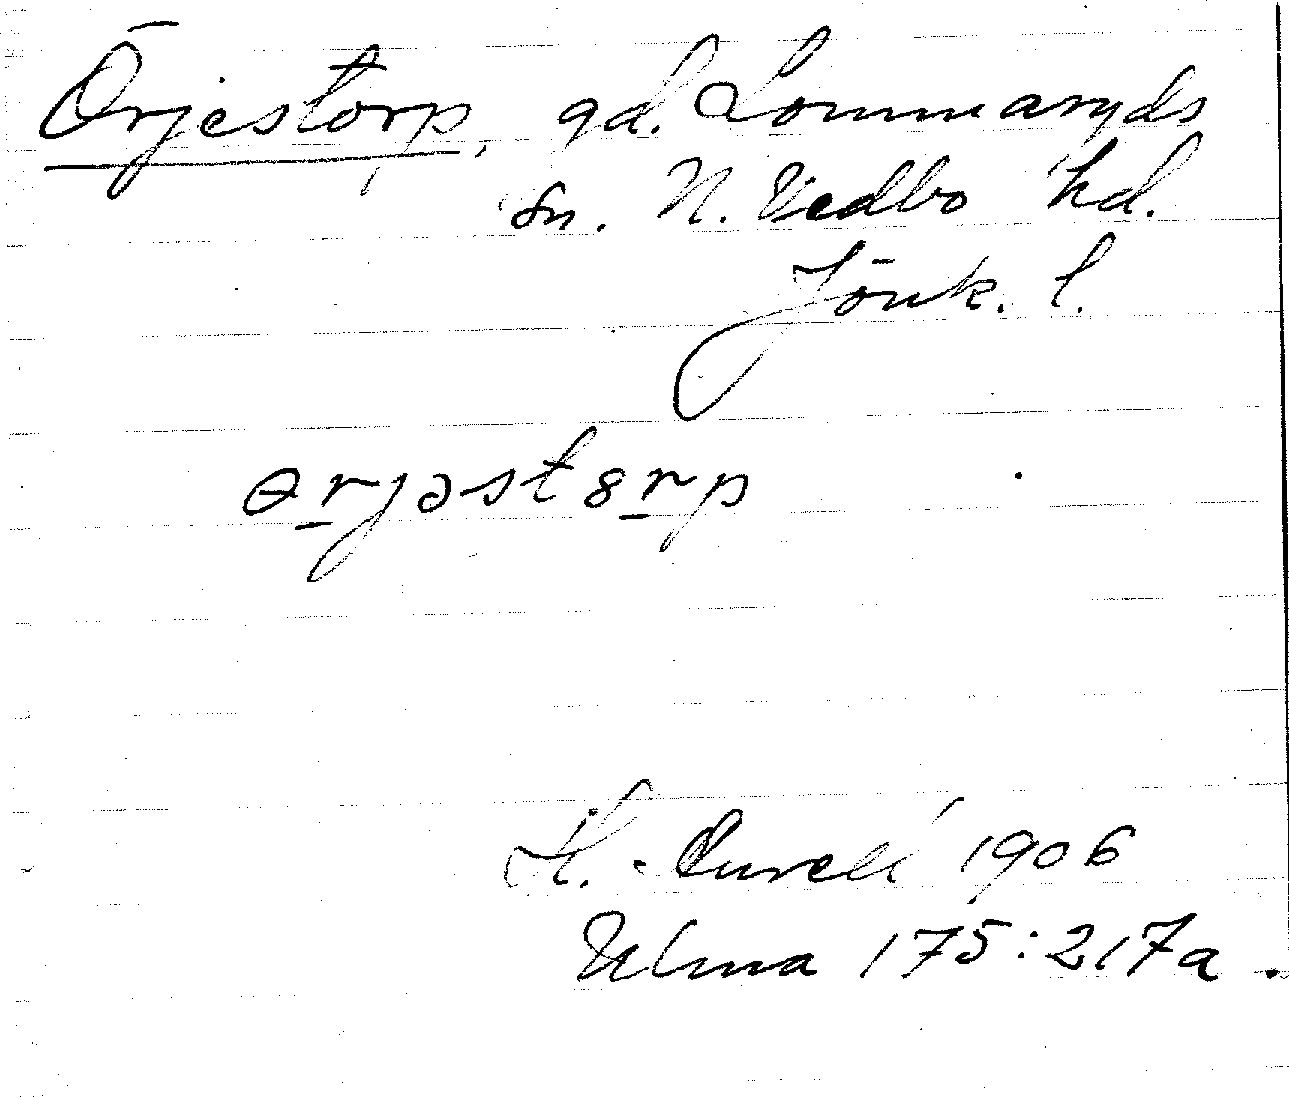 Örjestorp, gd. Lommaryds
sn. N. Vedbo hd.
Jönk. l.
ɵrjəst8rp
H. 1906
Ulma 175:217a.